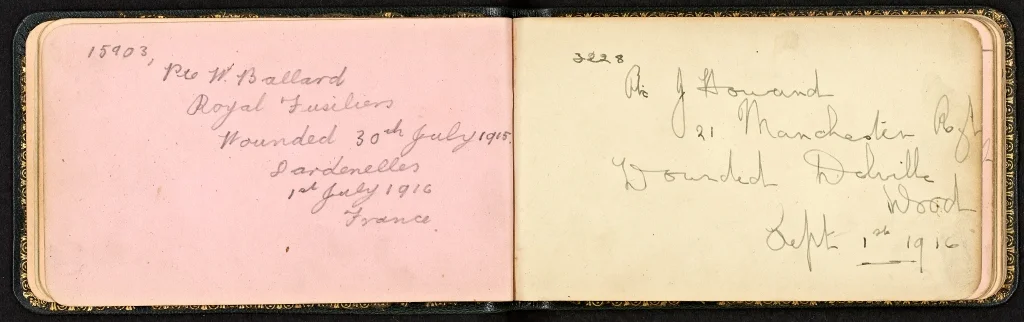 15903,
Pte W. Ballard
Royal Fusiliers
Wounded 30th July 1915.
Dardenelles
1st July 1916
France.
3228
Pte J Howard
21 Manchester Rgt
Wounded Delville
Wood
Sept 1st 1916